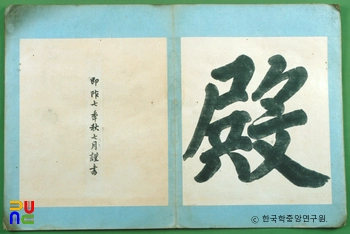 殿
即阼七秊秋七月謹書
ⓒ 한국학중앙연구원